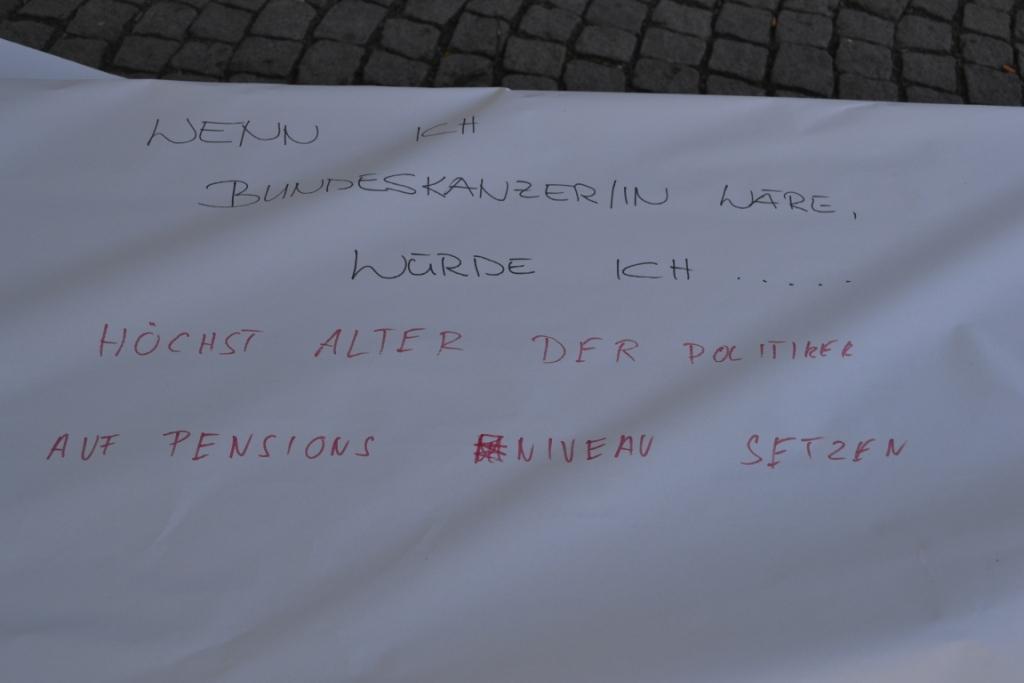 WENN ICH
BUNDESKANZER/IN WÄRE,
WÜRDE ICH .....
HÖCHST ALTER DER POLITIKER
AUF PENSIONS NIVEAU SETZEN